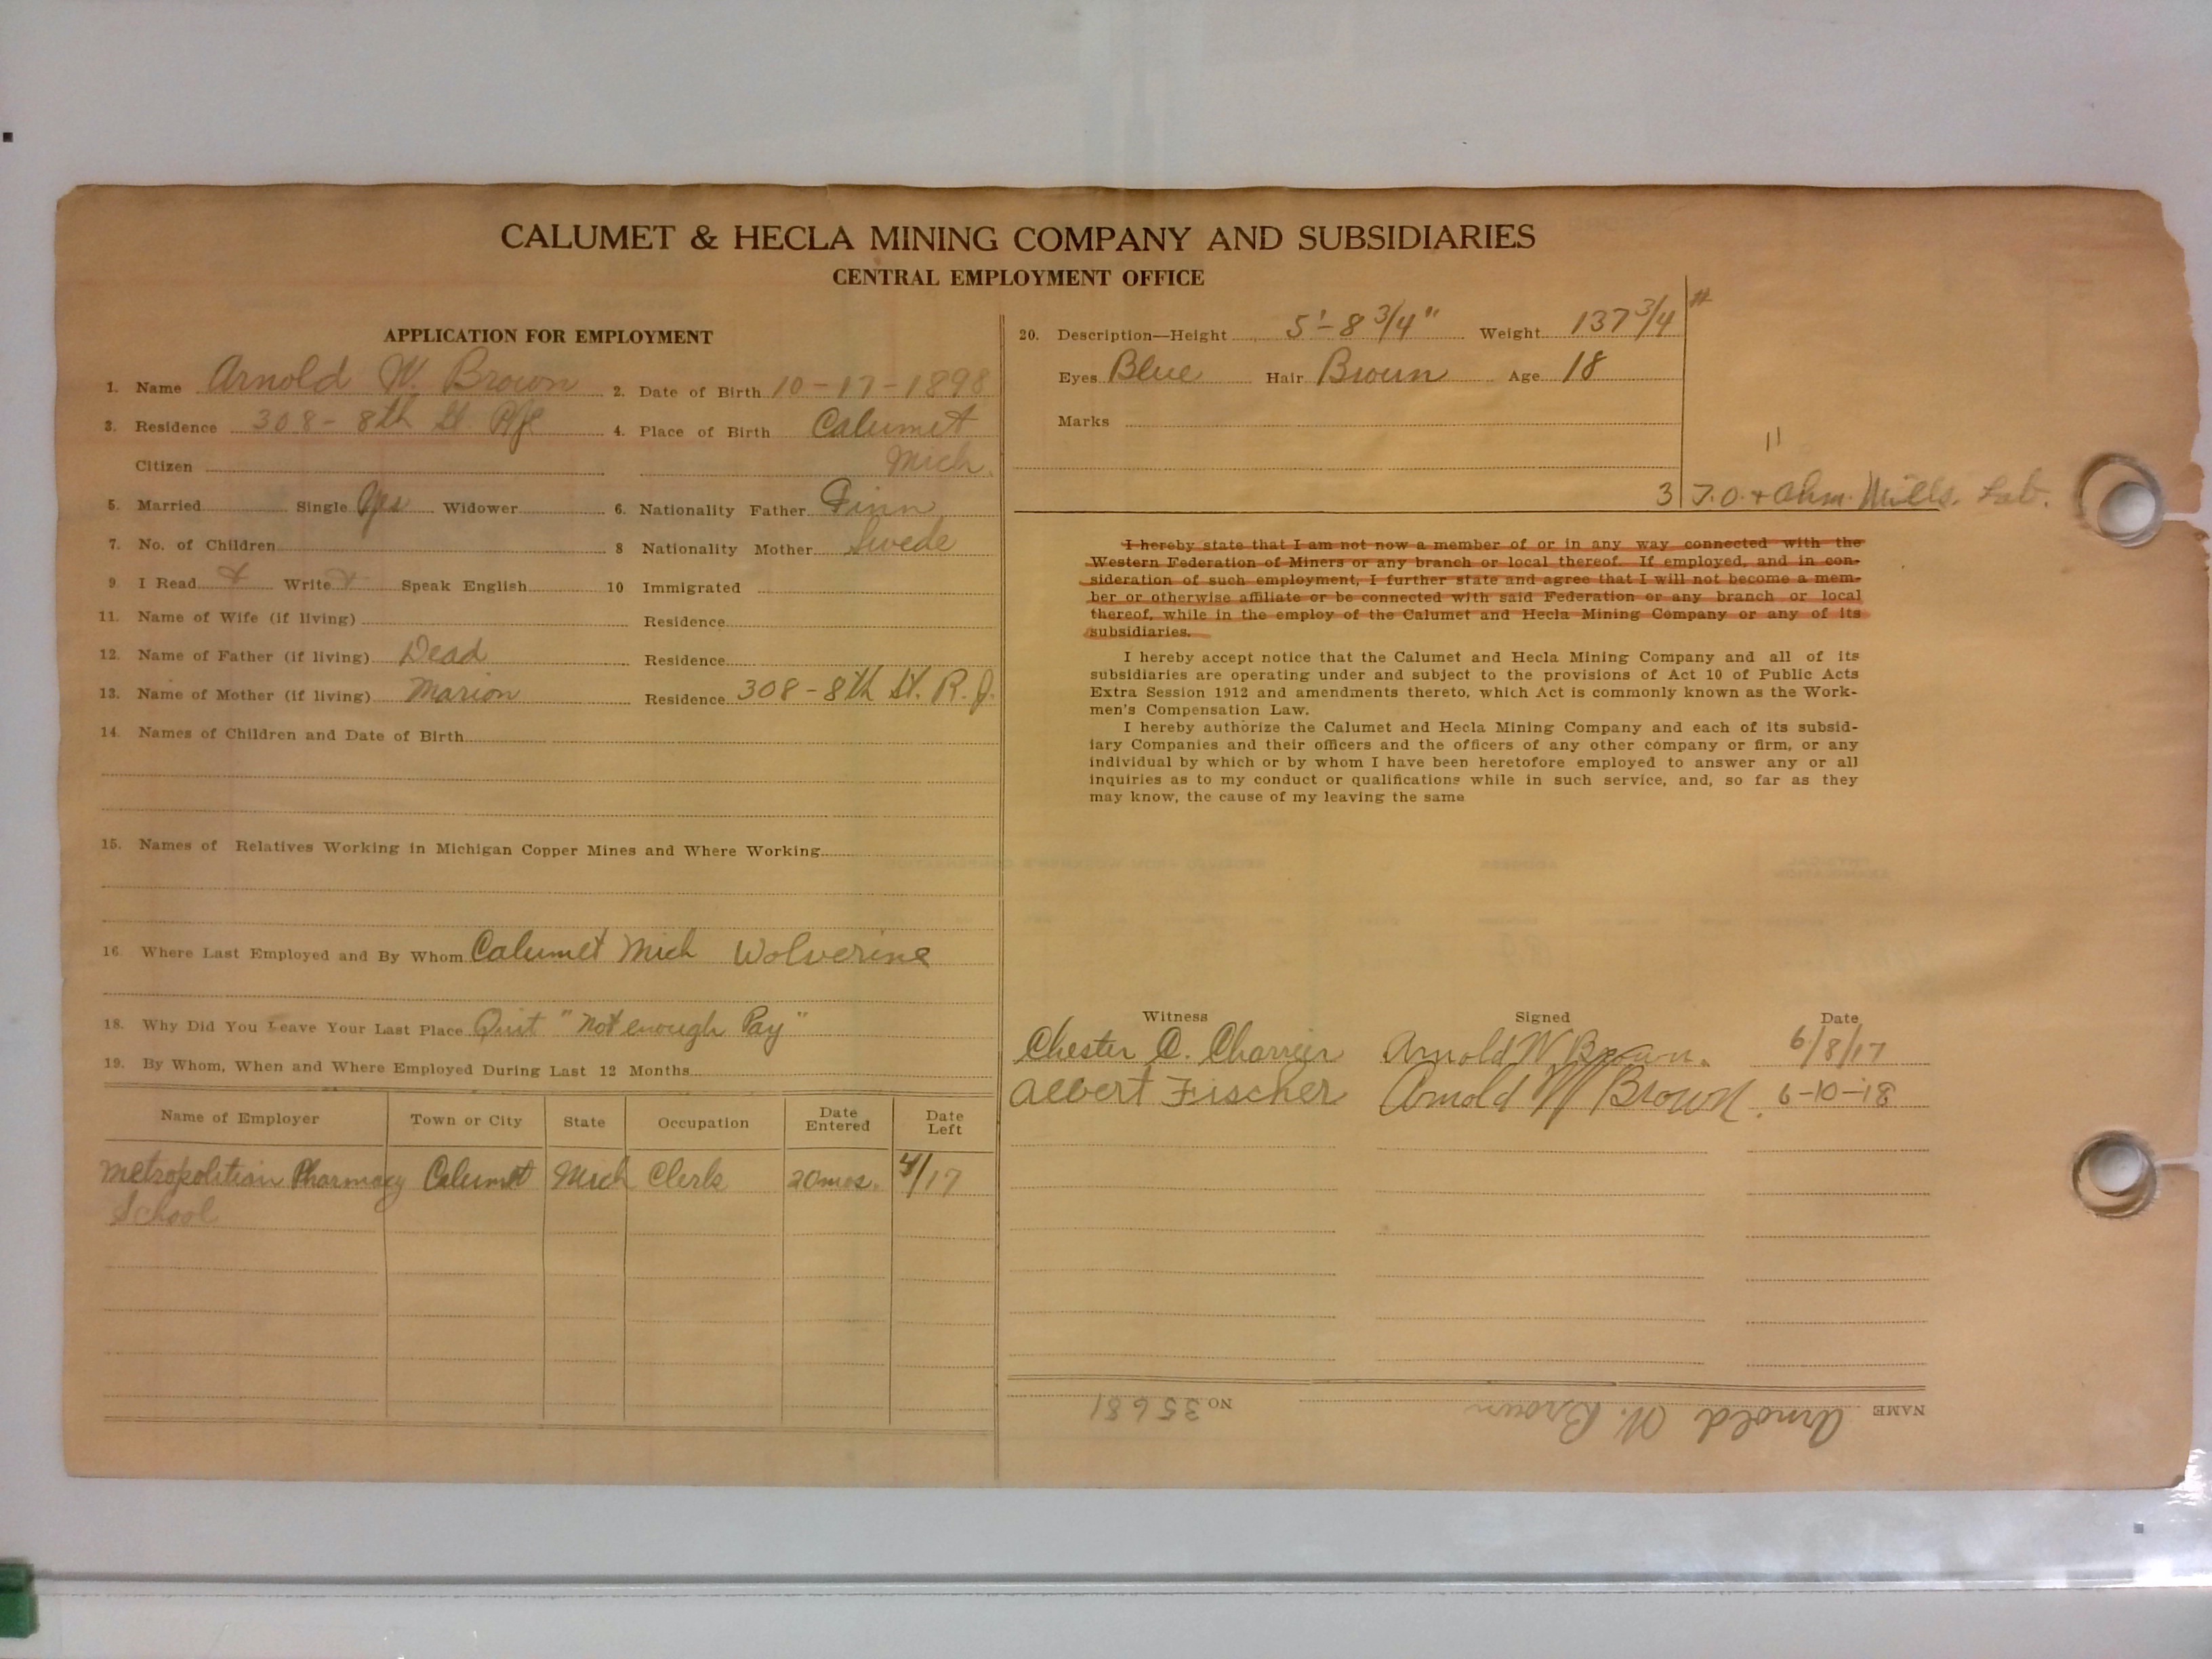 CALUMET & HECLA MINING COMPANY AND SUBSIDIARIES
CENTRAL EMPLOYMENT OFFICE
APPLICATION FOR EMPLOYMENT
1. Name Arnold W. Brown 2. Date of Birth 10-17-1898
3. Residence 308-8th St. 4. Place of Birth Calumet
Citizen Mich.
5. Married Single Yes Widower 6. Nationality Father Finn
7. No. of Children 8 Nationality Mother Swede
9. I Read Write Speak English 10 Immigrated
11. Name of Wife (if living) Residence
12. Name of Father (if living) Dead Residence
13. Name of Mother (if living) Marion Residence 308-8th St. R.J.
14. Names of Children and Date of Birth
15. Names of Relatives Working in Michigan Copper Mines and Where Working
16. Where Last Employed and By Whom Calumet Mich Wolverine
18. Why Did You Leave Your Last Place Quit "Not enough Pay"
19. By Whom, When and Where Employed During Last 12 Months
Name of Employer Town or City State Occupation Date Entered Date Left
Metropolitian Pharmacy Calumet Mich Clerk 20mos. 4/17
School
20. Description—Height 5'-8 3/4" Weight 137 3/4 #
Eyes Blue Hair Brown Age 18
Marks
11
3 T.O. + Ahm. Mills. Lab.
I hereby state that I am not now a member of or in any way connected with the
Western Federation of Miners or any branch or local thereof. If employed, and in con-
sideration of such employment, I further state and agree that I will not become a mem-
ber or otherwise affiliate or be connected with said Federation or any branch or local
thereof, while in the employ of the Calumet and Hecla Mining Company or any of its
subsidiaries.
I hereby accept notice that the Calumet and Hecla Mining Company and all of its
subsidiaries are operating under and subject to the provisions of Act 10 of Public Acts
Extra Session 1912 and amendments thereto, which Act is commonly known as the Work-
men's Compensation Law.
I hereby authorize the Calumet and Hecla Mining Company and each of its subsid-
iary Companies and their officers and the officers of any other company or firm, or any
individual by which or by whom I have been heretofore employed to answer any or all
inquiries as to my conduct or qualifications while in such service, and, so far as they
may know, the cause of my leaving the same
Witness Signed Date
Chester C. Charrier Arnold W Brown. 6/8/17
Albert Fischer Arnold W Brown. 6-10-18
NAME Arnold W. Brown NO. 35681